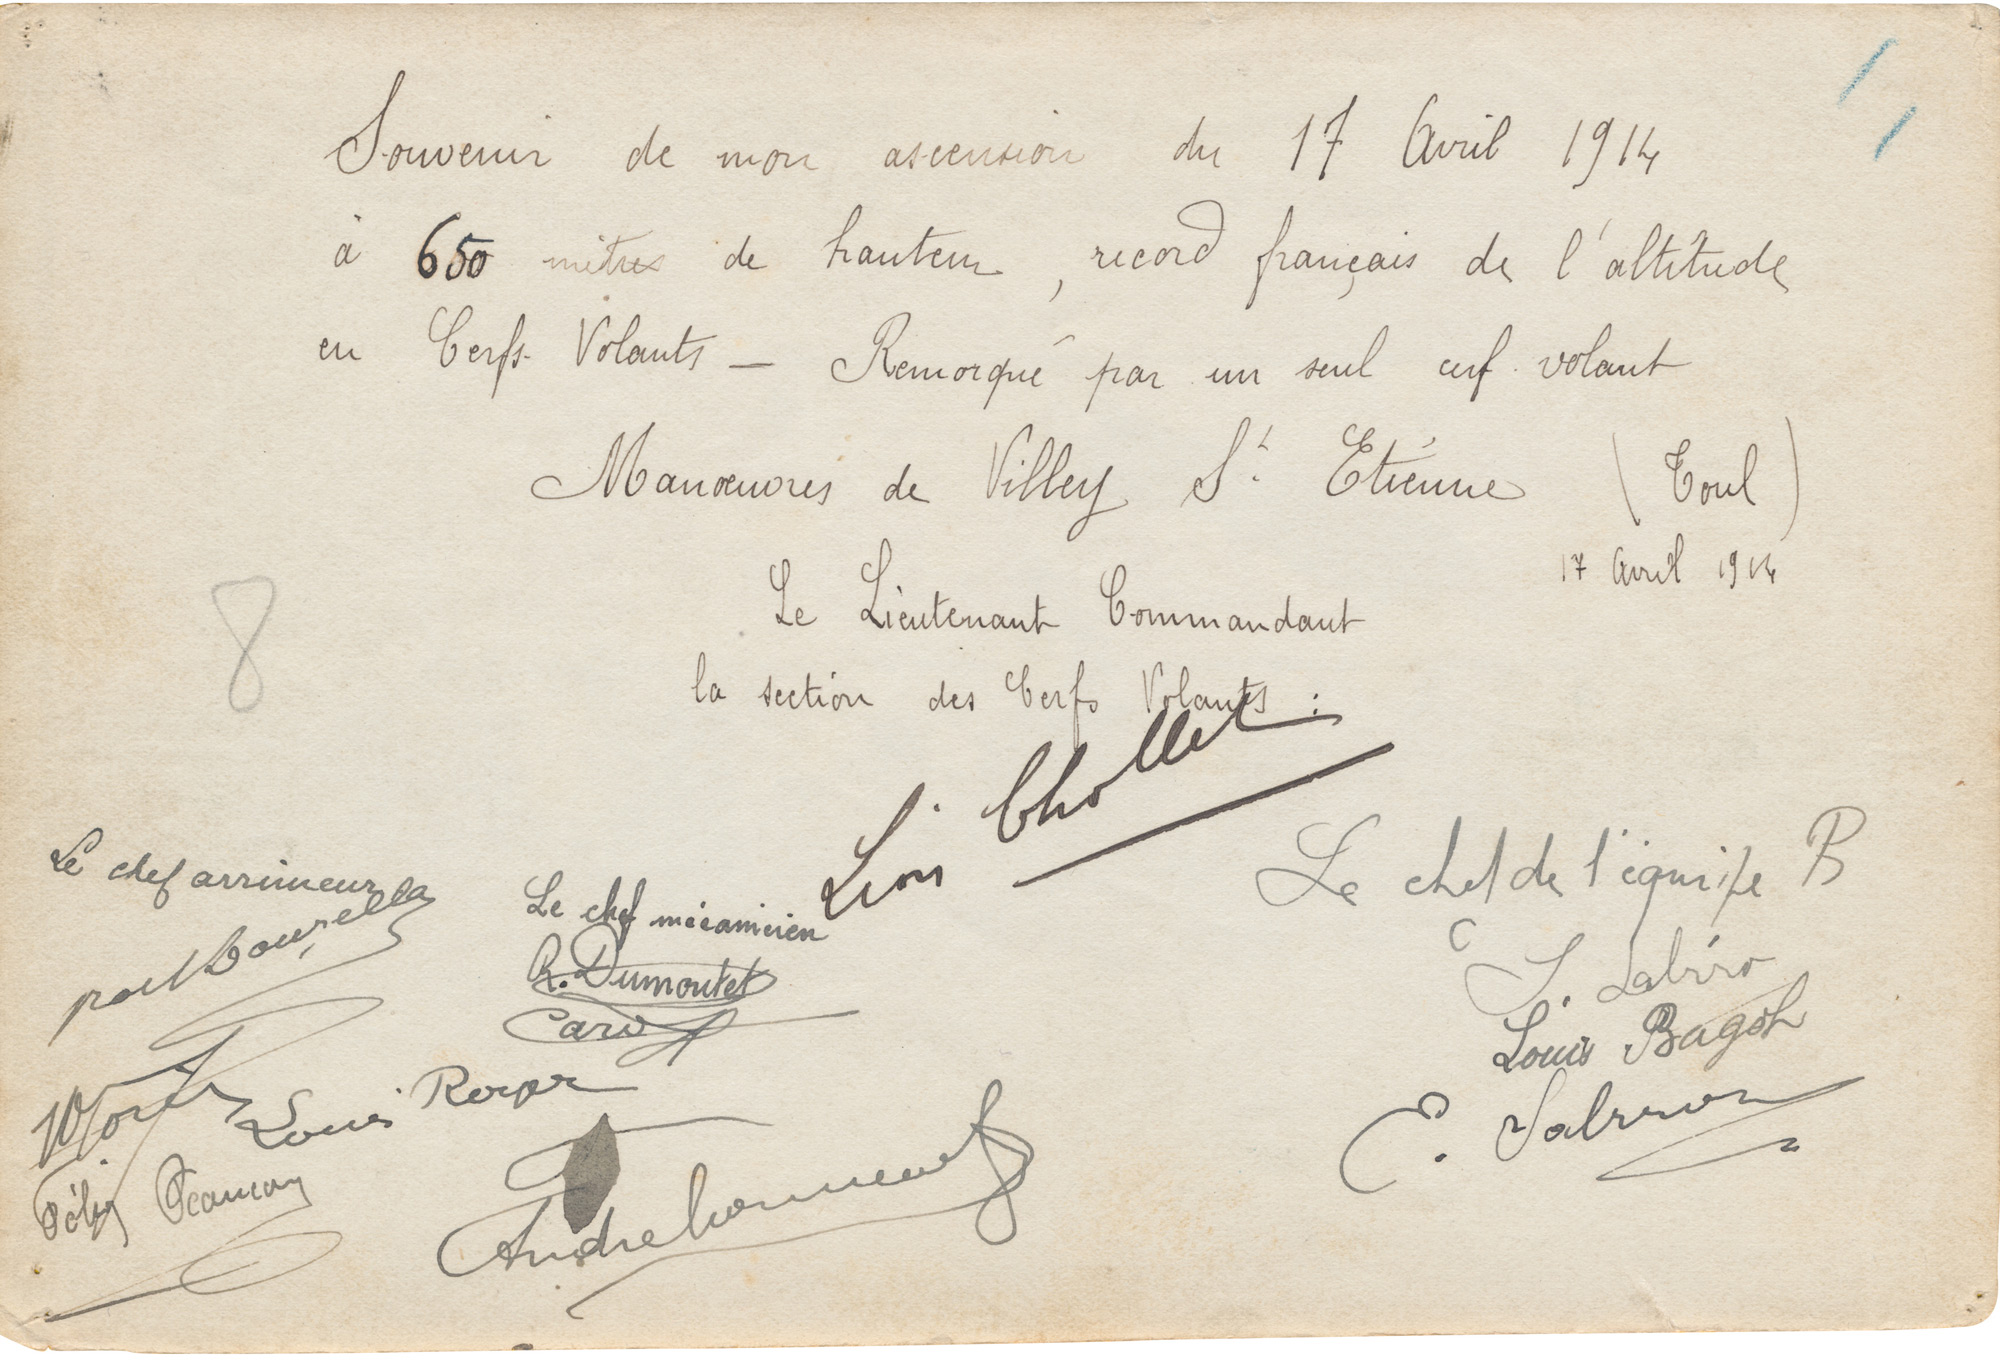 Souvenir de mon ascension du 17 Avril 1914
à 650 mètres de hauteur, record français de l'altitude
en Cerfs-Volants — Remorqué par un seul cerf-volant
Manoeuvres de Villey St. Etienne (Toul)
17 Avril 1914
Le Lieutenant Commandant
la section des Cerfs Volants :
Léon Chollet
Le chef arrimeur
Le chef mécanicien
R. Dumoutet
Caro
Louis
Félix
André
Le chef de l'équipe B
Louis Bagot
8